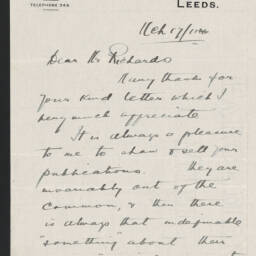 TELEPHONE 349.
LEEDS.
Feb 17/19
Dear Mr Richards
Many thanks for
your kind letter which I
very much appreciate
It is always a pleasure
to me to show & sell your
publications. They are
invariably out of the
Common, & then there
is always that indefinable
"something" about their